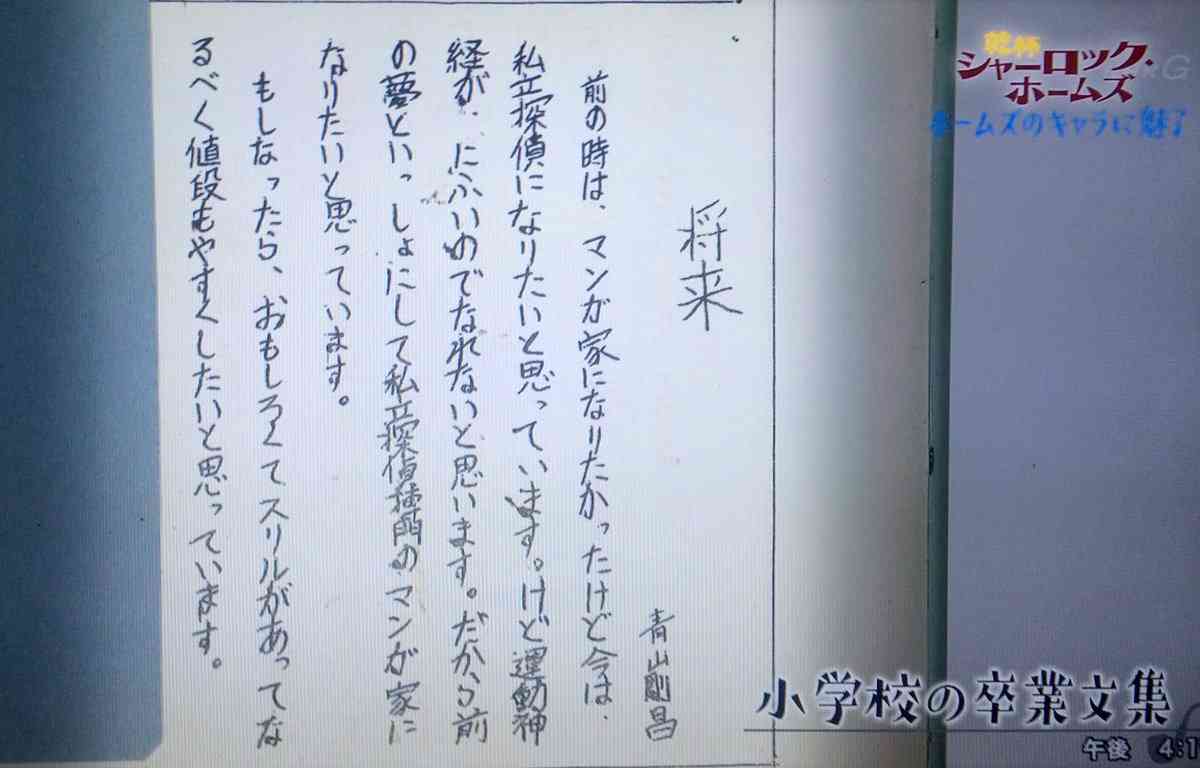 将来
青山剛昌
前の時は、マンが家になりたかったけど今は、
私立探偵になりたいと思っています。けど運動神
経が、にふいのでなれないと思います。だから前
の夢といっしょにして私立探偵専門のマンが家に
なりたいと思っています。
もしなったら、おもしろくてスリルがあってな
るべく値段もやすくしたいと思っています。
乾杯
シャーロック・
ホームズ
ホームズのキャラに魅了
小学校の卒業文集
午後 4:1